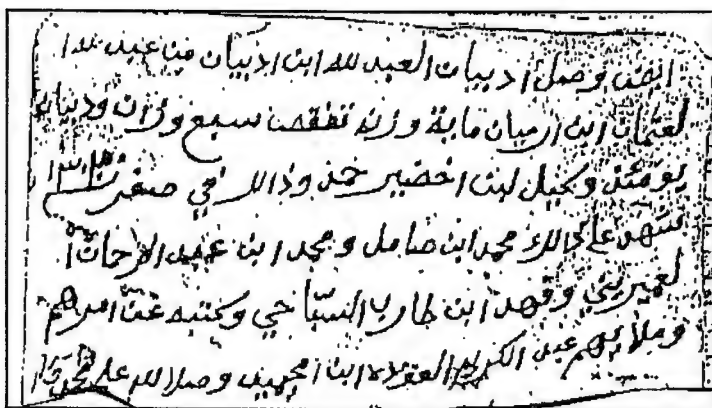 ايضن وصل ادبيان العبد لله ابن ادبيان من عبد لله
لعثمان ابن ارميان ماية وزنه تنقص سبع وزان ودبيان
يومئذ وكيل لبن اخضير خمد وذالك في صفر
شهد على ذالك محمد ابن ضامل ومحمد ابن عبد الرحمان
لعميريني وفهد ابن طارب السباحي وكتبه عن امرهم
وملايهم عبد الكريم العوده ابن امحيميد وصلا لله على محمد